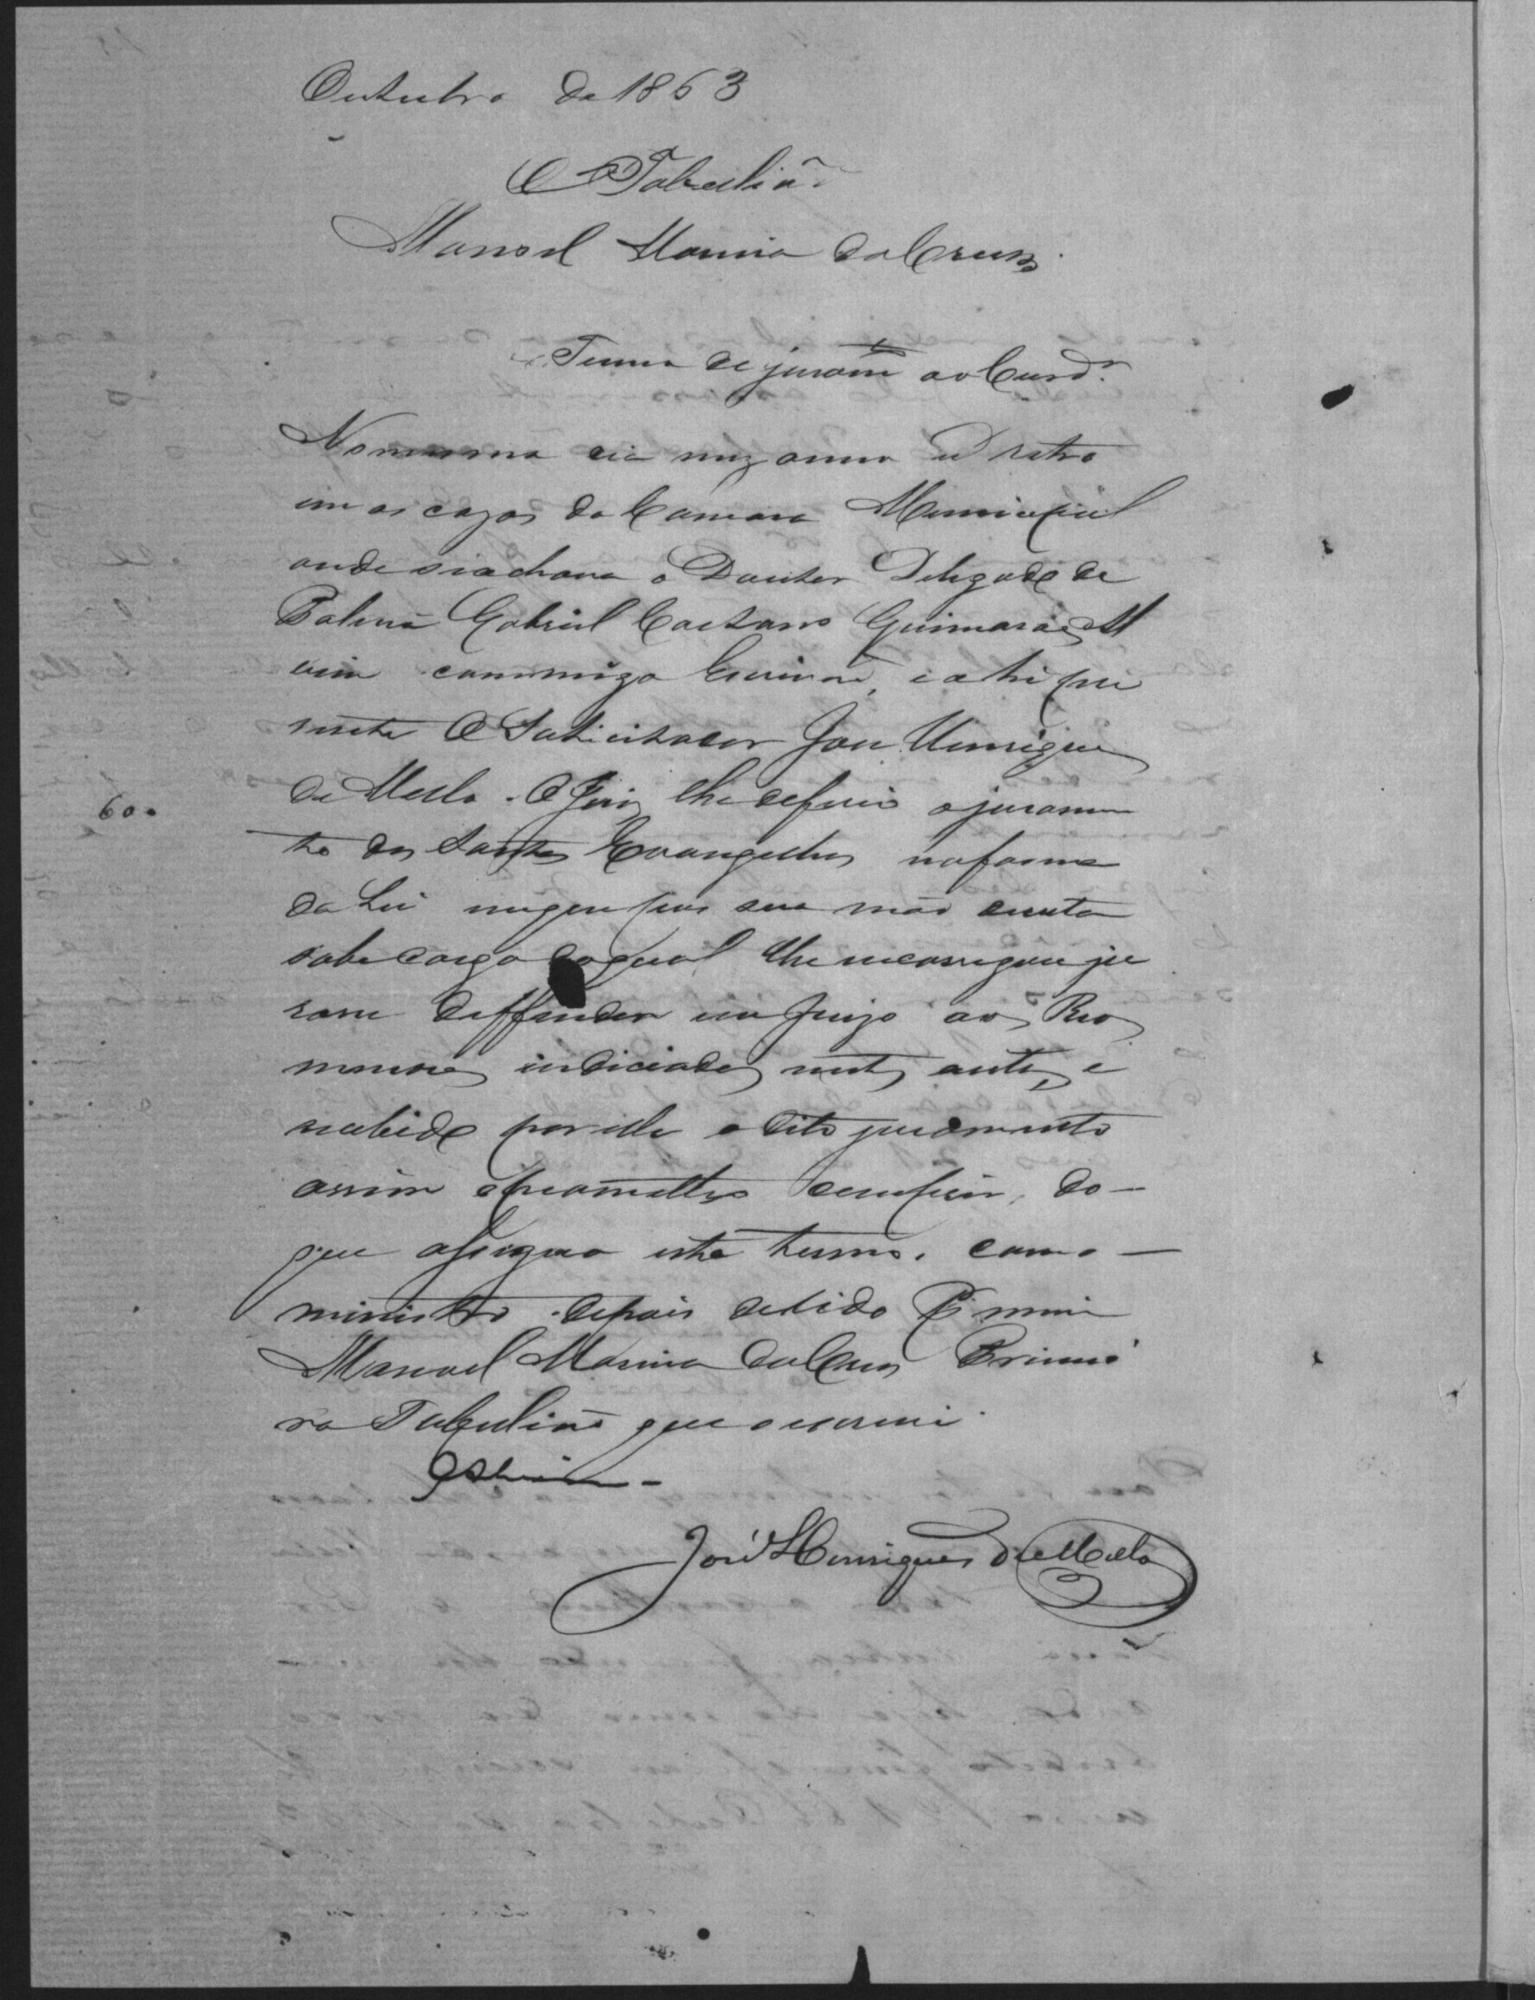 Outubro de 1863
O Tabeliaõ
Manoel Moreira da Cruz
Termo de juramto ao Curdr.
No mesmo dia mez anno e retro
em as cazas da Camara Municipal
onde si achava o Doutor Delegado de
Policia Gabriel Caetano Guimarães
commigo Escrivaõ, e ahi pre
sente O Solicitador José Henriques
de Mello. O Juiz lhe deferio o juramen
to dos Santos Evangelhos na forma
da Lei em que pos sua mão direita
sob cargo do qual lhe encarregou ju
rou deffender em Juizo aos Reos
menores indiciados nestes autos, e
recebido por elle o dito juramento
assim o prometteo cumprir, do
que assigna este termo, com o
ministro depois de lido P. mim
Manoel Moreira da Cruz Primei
ro Tabeliaõ que o escrevi.
600
José Henriques de Mello